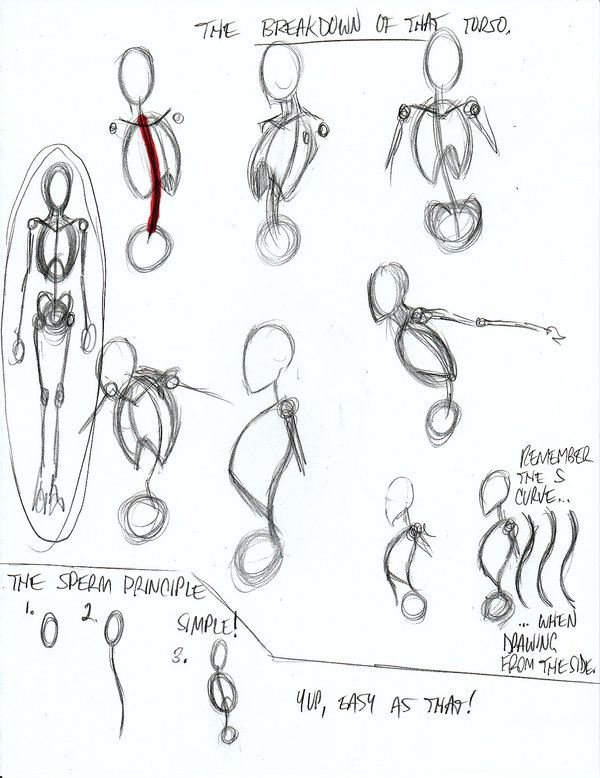 THE BREAKDOWN OF THAT TORSO.
REMEMBER
THE S
CURVE...
... WHEN
DRAWING
FROM THE SIDE.
THE SPERM PRINCIPLE
1.
2.
SIMPLE!
3.
YUP, EASY AS THAT!